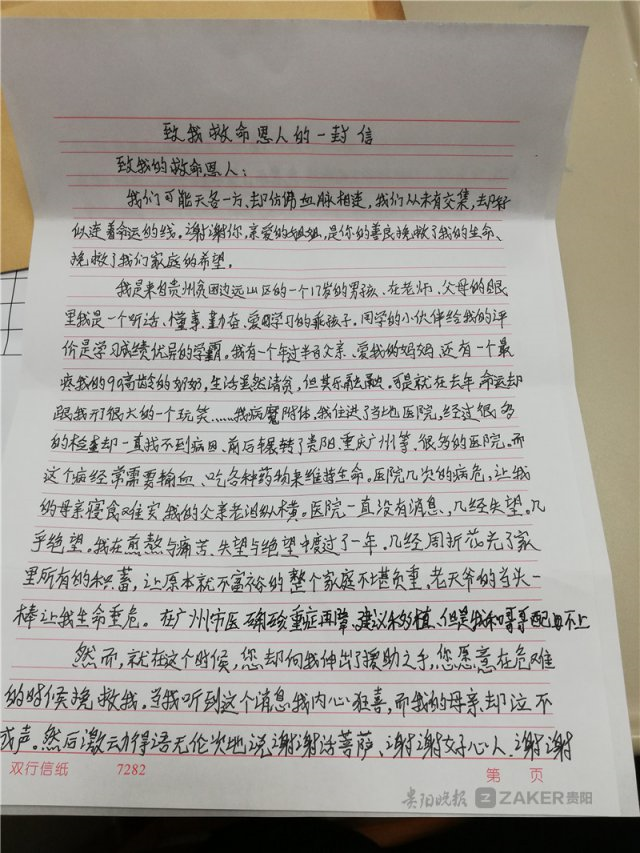 致我救命恩人的一封信
致我的救命恩人：
我们可能天各一方、却仿佛血脉相连，我们从未有交集，却好
似连着命运的线。谢谢你，亲爱的姐姐，是你的善良挽救了我的生命、
挽救了我们家庭的希望。
我是来自贵州贫困边远山区的一个17岁的男孩、在老师、父母的眼
里我是一个听话、懂事、勤奋、爱学习的乖孩子。同学的小伙伴给我的评
价是学习成绩优异的学霸。我有一个年过半百父亲、爱我的妈妈，还有一个最
疼我的99高龄的奶奶，生活虽然清贫，但其乐融融。可是就在去年 命运却
跟我开了很大的一个玩笑……我病魔附体，我住进了当地医院，经过很多
的检查却一直找不到病因、前后辗转了贵阳、重庆广州等、很多的医院。而
这个病经常需要输血、吃各种药物来维持生命。医院几次的病危，让我
的母亲寝食难安，我的父亲老泪纵横。医院一直没有消息、几经失望。几
乎绝望。我在煎熬与痛苦、失望与绝望中度过了一年。几经周折花光了家
里所有的积蓄，让原本就不富裕的整个家庭不堪负重、老天爷的当头一
棒让我生命垂危。在广州市医确诊重症再障，建议移植，但是我和哥哥配母不上
然而，就在这个时候，您却向我伸出了援助之手，您愿意在危难
的时候挽救我。当我听到这个消息我内心狂喜，而我的母亲却泣不
成声。然后激动得语无伦次地说谢谢活菩萨、谢谢好心人、谢谢
双行信纸 7282 第 页
贵阳晚报 ZAKER贵阳